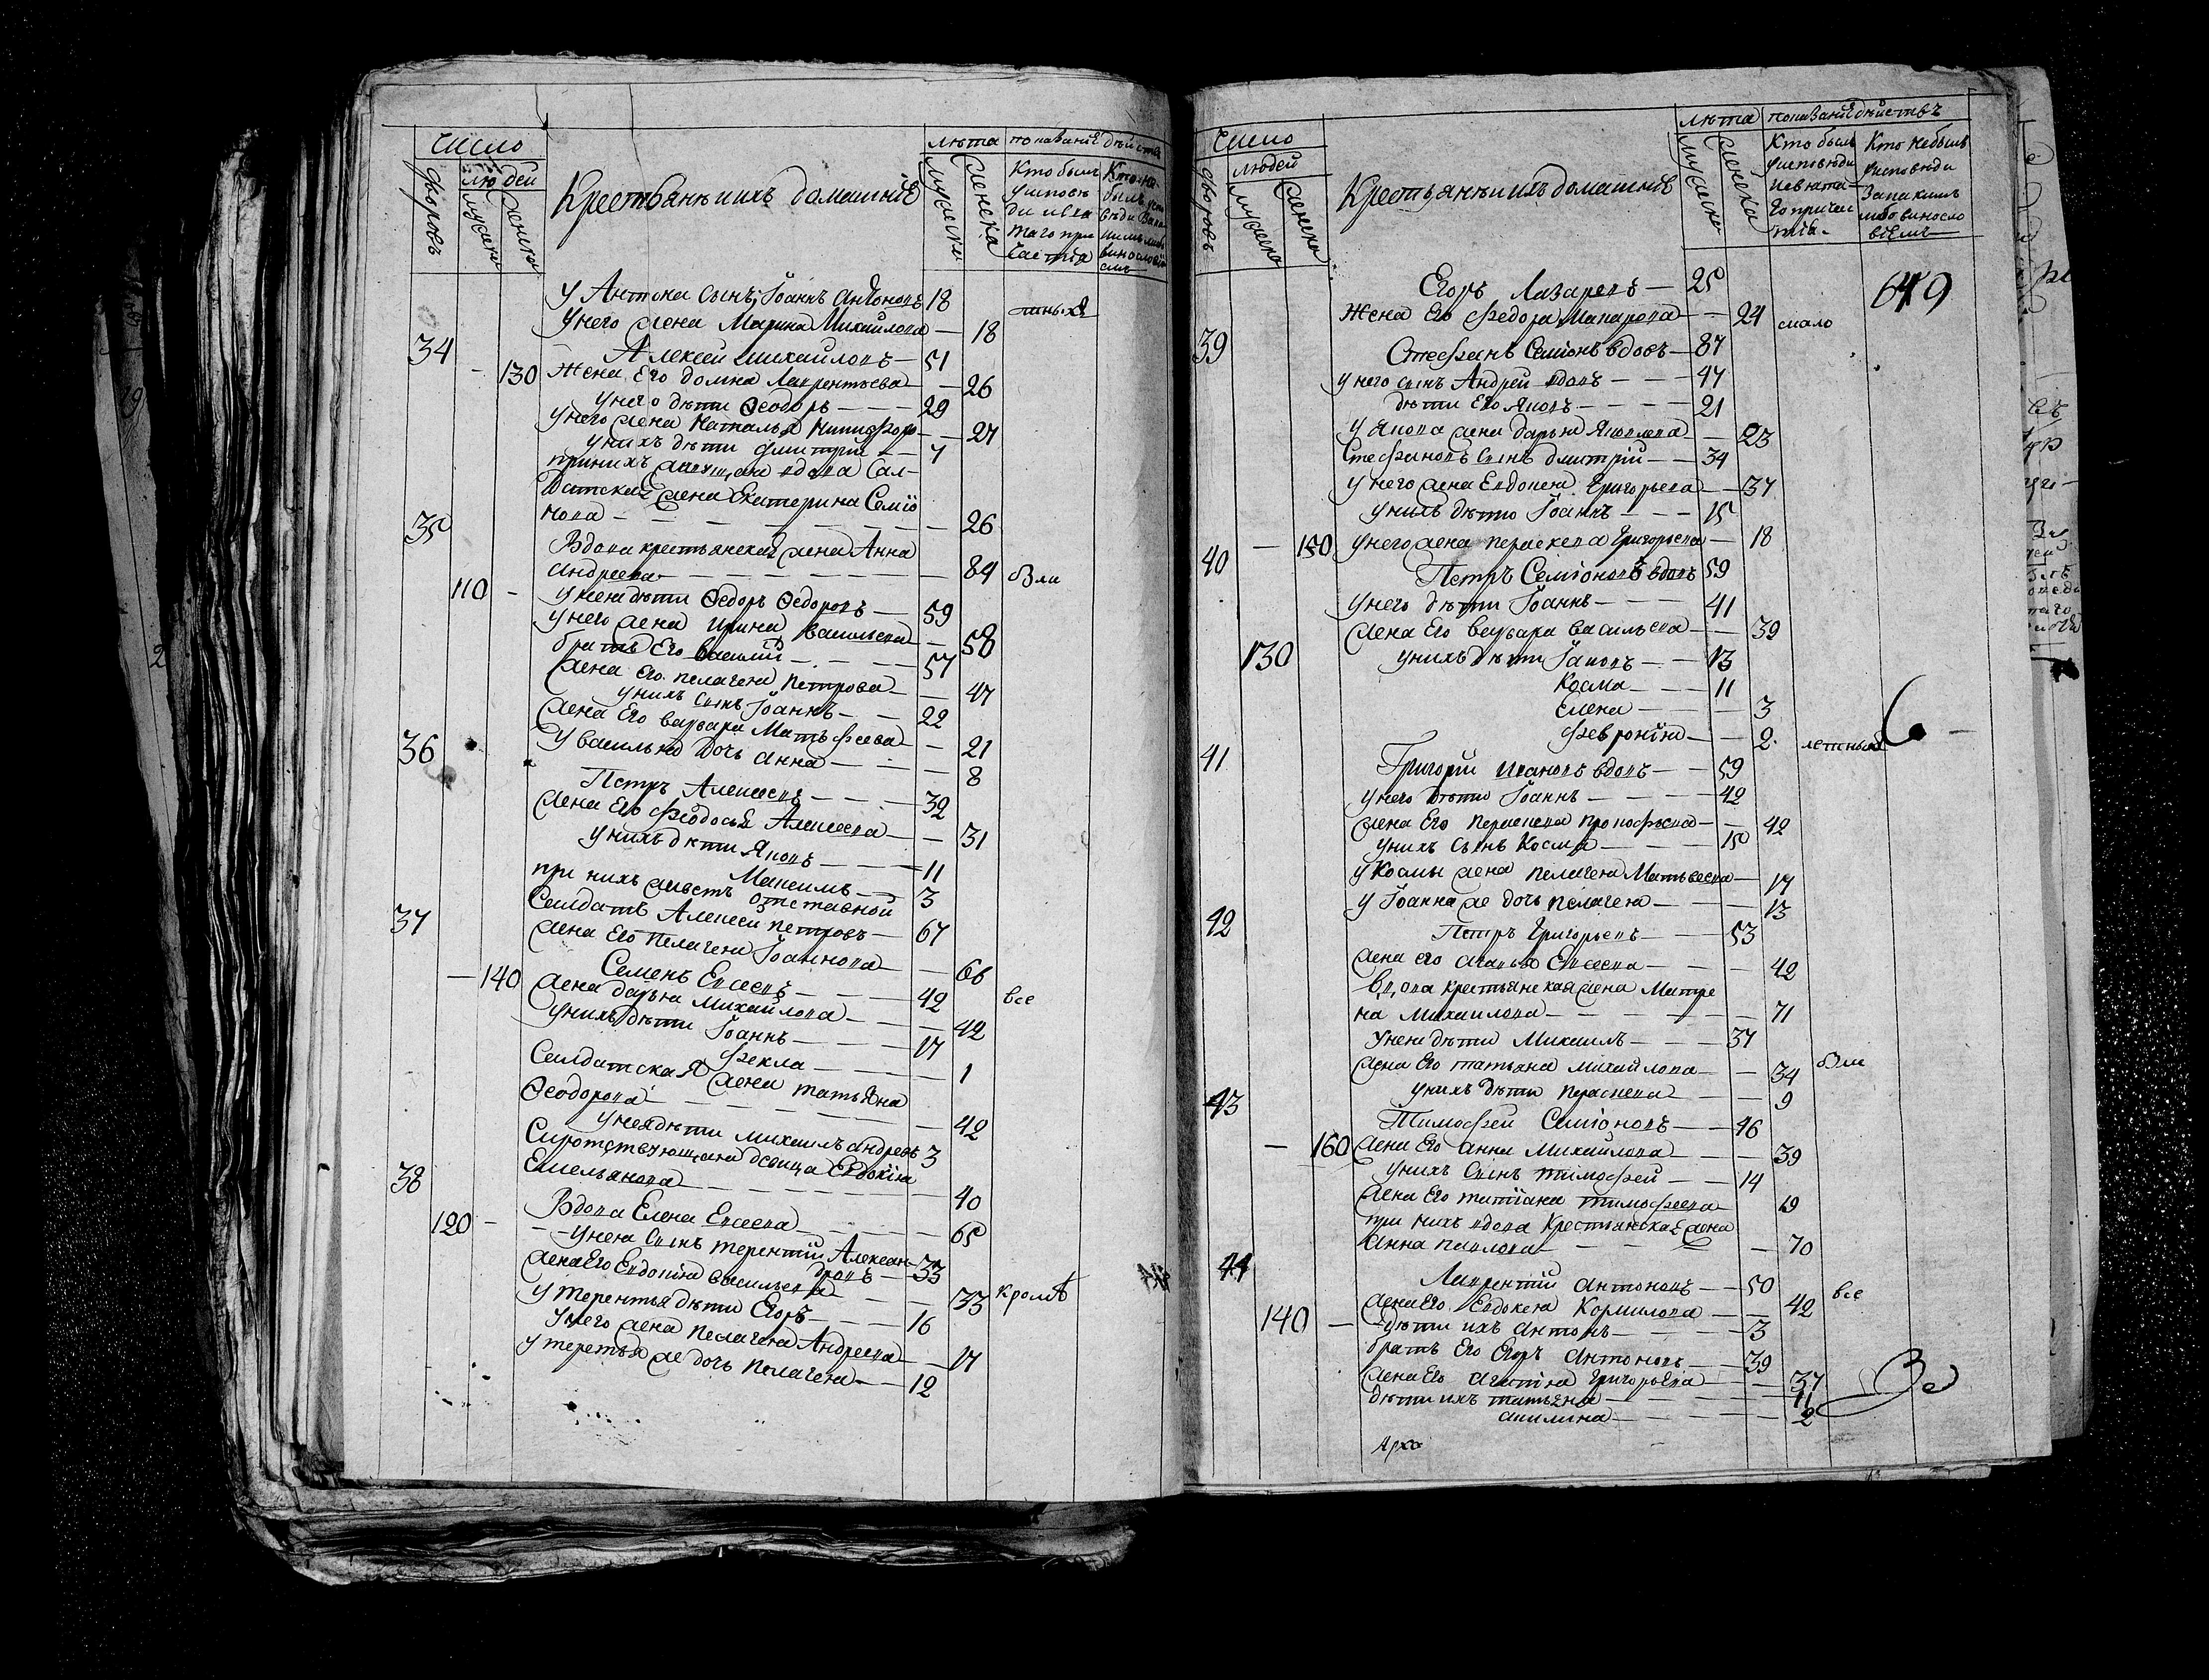 Число
людей
дворовъ
мужеска
женска
Крестьянѣ и ихъ домашнїе
лѣта
мужески
женска
показанїе дѣйствъ
Кто былъ
у исповѣ
ди и свя
таго при
частїя
Кто не
былъ
У Антона сынъ Іоаннъ Антоновъ 18
У него жена Марина Михайлова — 18
34 Алексей Михайловъ — 51
130 Жена Его домна Лаврентьева — 26
у него дѣти Ѳеодоръ — — — 29
у него жена Наталья Никифоро — 27
у нихъ дѣти Дмитрїй — 7
при нихъ вдова Сал-
датская жена Екатерина Семїо
нова — — — 26
35 Вдова крестьянская жена Анна
Андреева — — — 84
110 У нея дѣти Ѳедоръ Ѳедоровъ — 59
у него жена Ирина Васильева — 58
братъ Его Василїй — — — 57
жена Его пелагея Петрова — 47
у нихъ сынъ Іоаннъ — — 22
жена Его варвара Матъфеева — 21
У василья дочь Анна — — — 8
36 Петръ Алексеевъ — — — 32
жена Его Феодосья Алексеева — 31
у нихъ дѣти Яковъ — — — 11
Максимъ — — 3
при нихъ отставной
Салдатъ Алексей петровъ — 67
жена Его пелагея Іоаннова — 66
37 Семенъ Евсеевъ — — — 42 все
140 жена дарья Михайлова — — 42
у нихъ дѣти Іоаннъ — — — 17
Фекла — — — 1
Салдатская жена татьяна
Ѳеодорова — — — 42
у нея дѣти михаилъ андреевъ 3
девица Евдокїя
Емельянова — — — 40
38 Вдова Елена Евсеева — — — 65
120 у нея сынъ терентїй Алексан-
дровъ — 33
жена Его Евдокїя васильева — 33 кромѣ
У терентья дѣти Егоръ — — — 16
у него жена пелагея Андреева — 17
у терентья же дочь пелагея — 12
Число
людей
дворовъ
мужеска
женска
Крестьянѣ и ихъ домашнїе
лѣта
мужеска
женска
показанїе дѣйствъ
Кто былъ
у исповѣди
и свята-
го причас
тїя
Кто небылъ
у исповѣди
За какимъ
либо винosло
вїемъ
Егоръ Лазаревъ — 25
649
Жена Его Федора Макарова — 24
39 Стефанъ Семїонъ вдовъ — 87
у него сынъ Андрей вдовъ — — — 47
дѣти Его Яковъ — — — — 21
У Якова жена дарья Яковлева — 23
Стефановъ сынъ дмитрїй — — 34
у него жена Евдокея Григорьева — 37
у нихъ дѣти Іоаннъ — — — 15
150 у него жена параскева Григорьева — 18
40 Петръ Семїоновъ вдовъ 59
У него дѣти Іоаннъ — — — 41
жена Его варвара васильева — — 39
130 у нихъ дѣти Іаковъ — — 13
Косма — — — 11
Елена — — — 3
Февронїя — — 2
41 Григорїй Ивановъ вдовъ — — 59
у него дѣти Іоаннъ — — — — 42
жена Его парасkeва прокофьева — — 42
у нихъ сынъ Косма — — — 15
у Космы жена пелагея Матвеева — 17
у Іоанна же дочь пелагея — — — 13
42 Петръ Григорьевъ — — 53
жена его агафья Евсеева — — — 42
вдова крестьянская жена Матре
на Михаилова — — — 71
у нея дѣти Михаилъ — — — 37
жена Его татьяна михайлова — — 34
у нихъ дѣти параскева — — 9
43 Тимофей Семїоновъ — — 46
160 жена Его анна Михайлова — — 39
у нихъ сынъ тимофей — — 14
жена Его татїана тимофеева — 19
при нихъ вдова Крестьянская жена
Анна павлова — — — 70
44 Лаврентїй антоновъ — — 50 все
жена Его Евдокея Кормилова — — 42
140 дѣти ихъ антонъ — — — 3
братъ Его Егоръ антоновъ — — 39
жена Его агафїя григорьева — — 37
дѣти ихъ татьяна — — — 11
акилина — — — 2
Арха